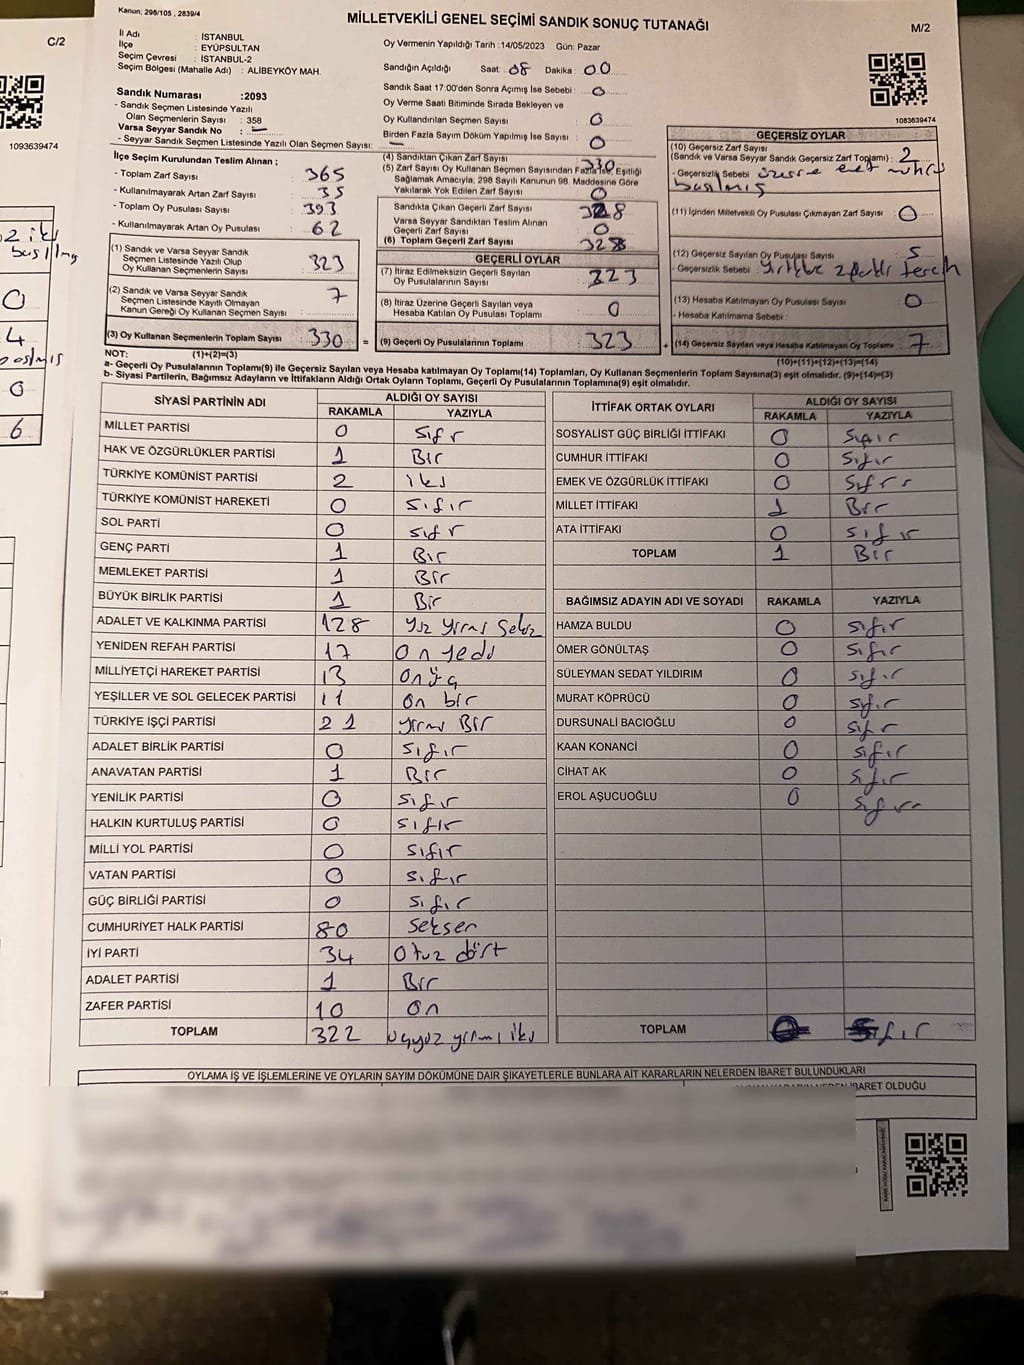 Kanun; 298/105 , 2839/4
MİLLETVEKİLİ GENEL SEÇİMİ SANDIK SONUÇ TUTANAĞI
M/2
C/2
İl Adı : İSTANBUL
İlçe : EYÜPSULTAN
Seçim Çevresi : İSTANBUL-2
Seçim Bölgesi (Mahalle Adı) : ALİBEYKÖY MAH.
Oy Vermenin Yapıldığı Tarih : 14/05/2023 Gün: Pazar
Sandığın Açıldığı Saat: 08 Dakika : 00
Sandık Saat 17:00'den Sonra Açımış İse Sebebi : 0
Oy Verme Saati Bitiminde Sırada Bekleyen ve
Oy Kullandırılan Seçmen Sayısı : 0
Birden Fazla Sayım Döküm Yapılmış İse Sayısı : 0
1083639474
1093639474
Sandık Numarası :2093
- Sandık Seçmen Listesinde Yazılı
Olan Seçmenlerin Sayısı : 358
Varsa Seyyar Sandık No : —
- Seyyar Sandık Seçmen Listesinde Yazılı Olan Seçmen Sayısı: —
İlçe Seçim Kurulundan Teslim Alınan ;
- Toplam Zarf Sayısı : 365
- Kullanılmayarak Artan Zarf Sayısı : 35
- Toplam Oy Pusulası Sayısı : 393
- Kullanılmayarak Artan Oy Pusulası : 62
(1) Sandık ve Varsa Seyyar Sandık
Seçmen Listesinde Yazılı Olup
Oy Kullanan Seçmenlerin Sayısı : 323
(2) Sandık ve Varsa Seyyar Sandık
Seçmen Listesinde Kayıtlı Olmayan
Kanun Gereği Oy Kullanan Seçmen Sayısı : 7
(3) Oy Kullanan Seçmenlerin Toplam Sayısı : 330
(1)+(2)=(3)
(4) Sandıktan Çıkan Zarf Sayısı : 330
(5) Zarf Sayısı Oy Kullanan Seçmen Sayısından Fazla İse, Eşitliği
Sağlamak Amacıyla, 298 Sayılı Kanunun 98. Maddesine Göre
Yakılarak Yok Edilen Zarf Sayısı : 0
Sandıkta Çıkan Geçerli Zarf Sayısı : 328
Varsa Seyyar Sandıktan Teslim Alınan
Geçerli Zarf Sayısı : 0
(6) Toplam Geçerli Zarf Sayısı : 328
GEÇERLİ OYLAR
(7) İtiraz Edilmeksizin Geçerli Sayılan
Oy Pusulalarının Sayısı : 323
(8) İtiraz Üzerine Geçerli Sayılan veya
Hesaba Katılan Oy Pusulası Toplamı : 0
= (9) Geçerli Oy Pusulalarının Toplamı : 323
GEÇERSİZ OYLAR
(10) Geçersiz Zarf Sayısı
(Sandık ve Varsa Seyyar Sandık Geçersiz Zarf Toplamı) : 2
- Geçersizlik Sebebi : üzerine evet mührü
basılmış
(11) İçinden Milletvekili Oy Pusulası Çıkmayan Zarf Sayısı : 0
(12) Geçersiz Sayılan Oy Pusulası Sayısı : 5
- Geçersizlik Sebebi :
(13) Hesaba Katılmayan Oy Pusulası Sayısı : 0
- Hesaba Katılmama Sebebi :
+ (14) Geçersiz Sayılan veya Hesaba Katılmayan Oy Toplamı : 7
(10)+(11)+(12)+(13)=(14)
NOT:
a- Geçerli Oy Pusulalarının Toplamı(9) ile Geçersiz Sayılan veya Hesaba katılmayan Oy Toplamı(14) Toplamları, Oy Kullanan Seçmenlerin Toplam Sayısına(3) eşit olmalıdır. (9)+(14)=(3)
b- Siyasi Partilerin, Bağımsız Adayların ve İttifakların Aldığı Ortak Oyların Toplamı, Geçerli Oy Pusulalarının Toplamına(9) eşit olmalıdır.
SİYASİ PARTİNİN ADI ALDIĞI OY SAYISI
RAKAMLA YAZIYLA
MİLLET PARTİSİ 0 Sıfır
HAK VE ÖZGÜRLÜKLER PARTİSİ 1 Bir
TÜRKİYE KOMÜNİST PARTİSİ 2 iki
TÜRKİYE KOMÜNİST HAREKETİ 0 sıfır
SOL PARTİ 0 sıfır
GENÇ PARTİ 1 Bir
MEMLEKET PARTİSİ 1 Bir
BÜYÜK BİRLİK PARTİSİ 1 Bir
ADALET VE KALKINMA PARTİSİ 128 Yüz Yirmi Sekiz
YENİDEN REFAH PARTİSİ 17 On yedi
MİLLİYETÇİ HAREKET PARTİSİ 13 on üç
YEŞİLLER VE SOL GELECEK PARTİSİ 11 on bir
TÜRKİYE İŞÇİ PARTİSİ 21 yirmi Bir
ADALET BİRLİK PARTİSİ 0 sıfır
ANAVATAN PARTİSİ 1 Bir
YENİLİK PARTİSİ 0 sıfır
HALKIN KURTULUŞ PARTİSİ 0 sıfır
MİLLİ YOL PARTİSİ 0 sıfır
VATAN PARTİSİ 0 sıfır
GÜÇ BİRLİĞİ PARTİSİ 0 sıfır
CUMHURİYET HALK PARTİSİ 80 Seksen
İYİ PARTİ 34 Otuz dört
ADALET PARTİSİ 1 Bir
ZAFER PARTİSİ 10 On
TOPLAM 322 Üçyüz yirmi iki
İTTİFAK ORTAK OYLARI ALDIĞI OY SAYISI
RAKAMLA YAZIYLA
SOSYALİST GÜÇ BİRLİĞİ İTTİFAKI 0 Sıfır
CUMHUR İTTİFAKI 0 Sıfır
EMEK VE ÖZGÜRLÜK İTTİFAKI 0 Sıfır
MİLLET İTTİFAKI 1 Bir
ATA İTTİFAKI 0 sıfır
TOPLAM 1 Bir
BAĞIMSIZ ADAYIN ADI VE SOYADI RAKAMLA YAZIYLA
HAMZA BULDU 0 sıfır
ÖMER GÖNÜLTAŞ 0 sıfır
SÜLEYMAN SEDAT YILDIRIM 0 sıfır
MURAT KÖPRÜCÜ 0 sıfır
DURSUNALİ BACIOĞLU 0 sıfır
KAAN KONANCİ 0 sıfır
CİHAT AK 0 sıfır
EROL AŞUCUOĞLU 0 sıfır
TOPLAM 0 Sıfır
OYLAMA İŞ VE İŞLEMLERİNE VE OYLARIN SAYIM DÖKÜMÜNE DAİR ŞİKAYETLERLE BUNLARA AİT KARARLARIN NELERDEN İBARET BULUNDUKLARI
İBARET OLDUĞU